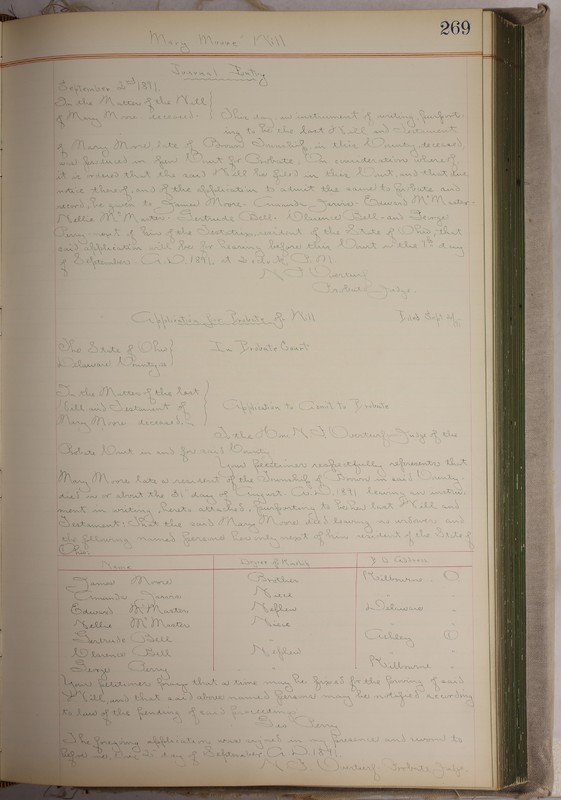 269
Mary Moore's Will
Journal Entry
September 2nd 1891.
In the Matter of the Will
of Mary Moore deceased.
This day an instrument of writing, purport-
ing to be the last Will and Testament
of Mary Moore late of Township, in this County deceased,
was produced in open Court for Probate. On consideration whereof,
it is ordered that the said Will be filed in this Court, and that
notice thereof, and of the application to admit the same to Probate and
record, be given to James Moore Edward McMaster
Nellie McMaster Gertrude Bell Clarence Bell and George
Perry next of kin of the Testatrix, resident of the State of Ohio, that
said application will be for hearing before this Court on the 7th day
of September A.D. 1891, at 2 o'clock P.M.
Probate Judge.
Application for Probate of Will
Filed Sept 2/
The State of Ohio
Delaware County ss
In Probate Court
In the Matter of the last
Will and Testament of
Mary Moore deceased
Application to Admit to Probate
To the Hon Judge of the
Probate Court in and for said County
Your petitioner respectfully represents that
Mary Moore late a resident of the Township of Brown in said County
died on or about the day of August A.D. 1891 leaving an instru-
ment in writing, hereto attached, purporting to be her last Will and
Testament; that the said Mary Moore died leaving no widower and
the following named persons her only next of kin resident of the State of
Ohio.
Name Degree of Kinship P.O. Address
James Moore Brother O
Niece "
Edward McMaster Nephew Delaware "
Nellie McMaster Niece "
Gertrude Bell " Ashley O
Clarence Bell Nephew "
George Perry "
Your petitioner prays that a time may be fixed for the proving of said
Will, and that said above named persons may be notified according
to law of the pending of said proceedings
Geo Perry
The foregoing application was signed in my presence and sworn to
before me this 2 day of September A.D. 1891.
Probate Judge.